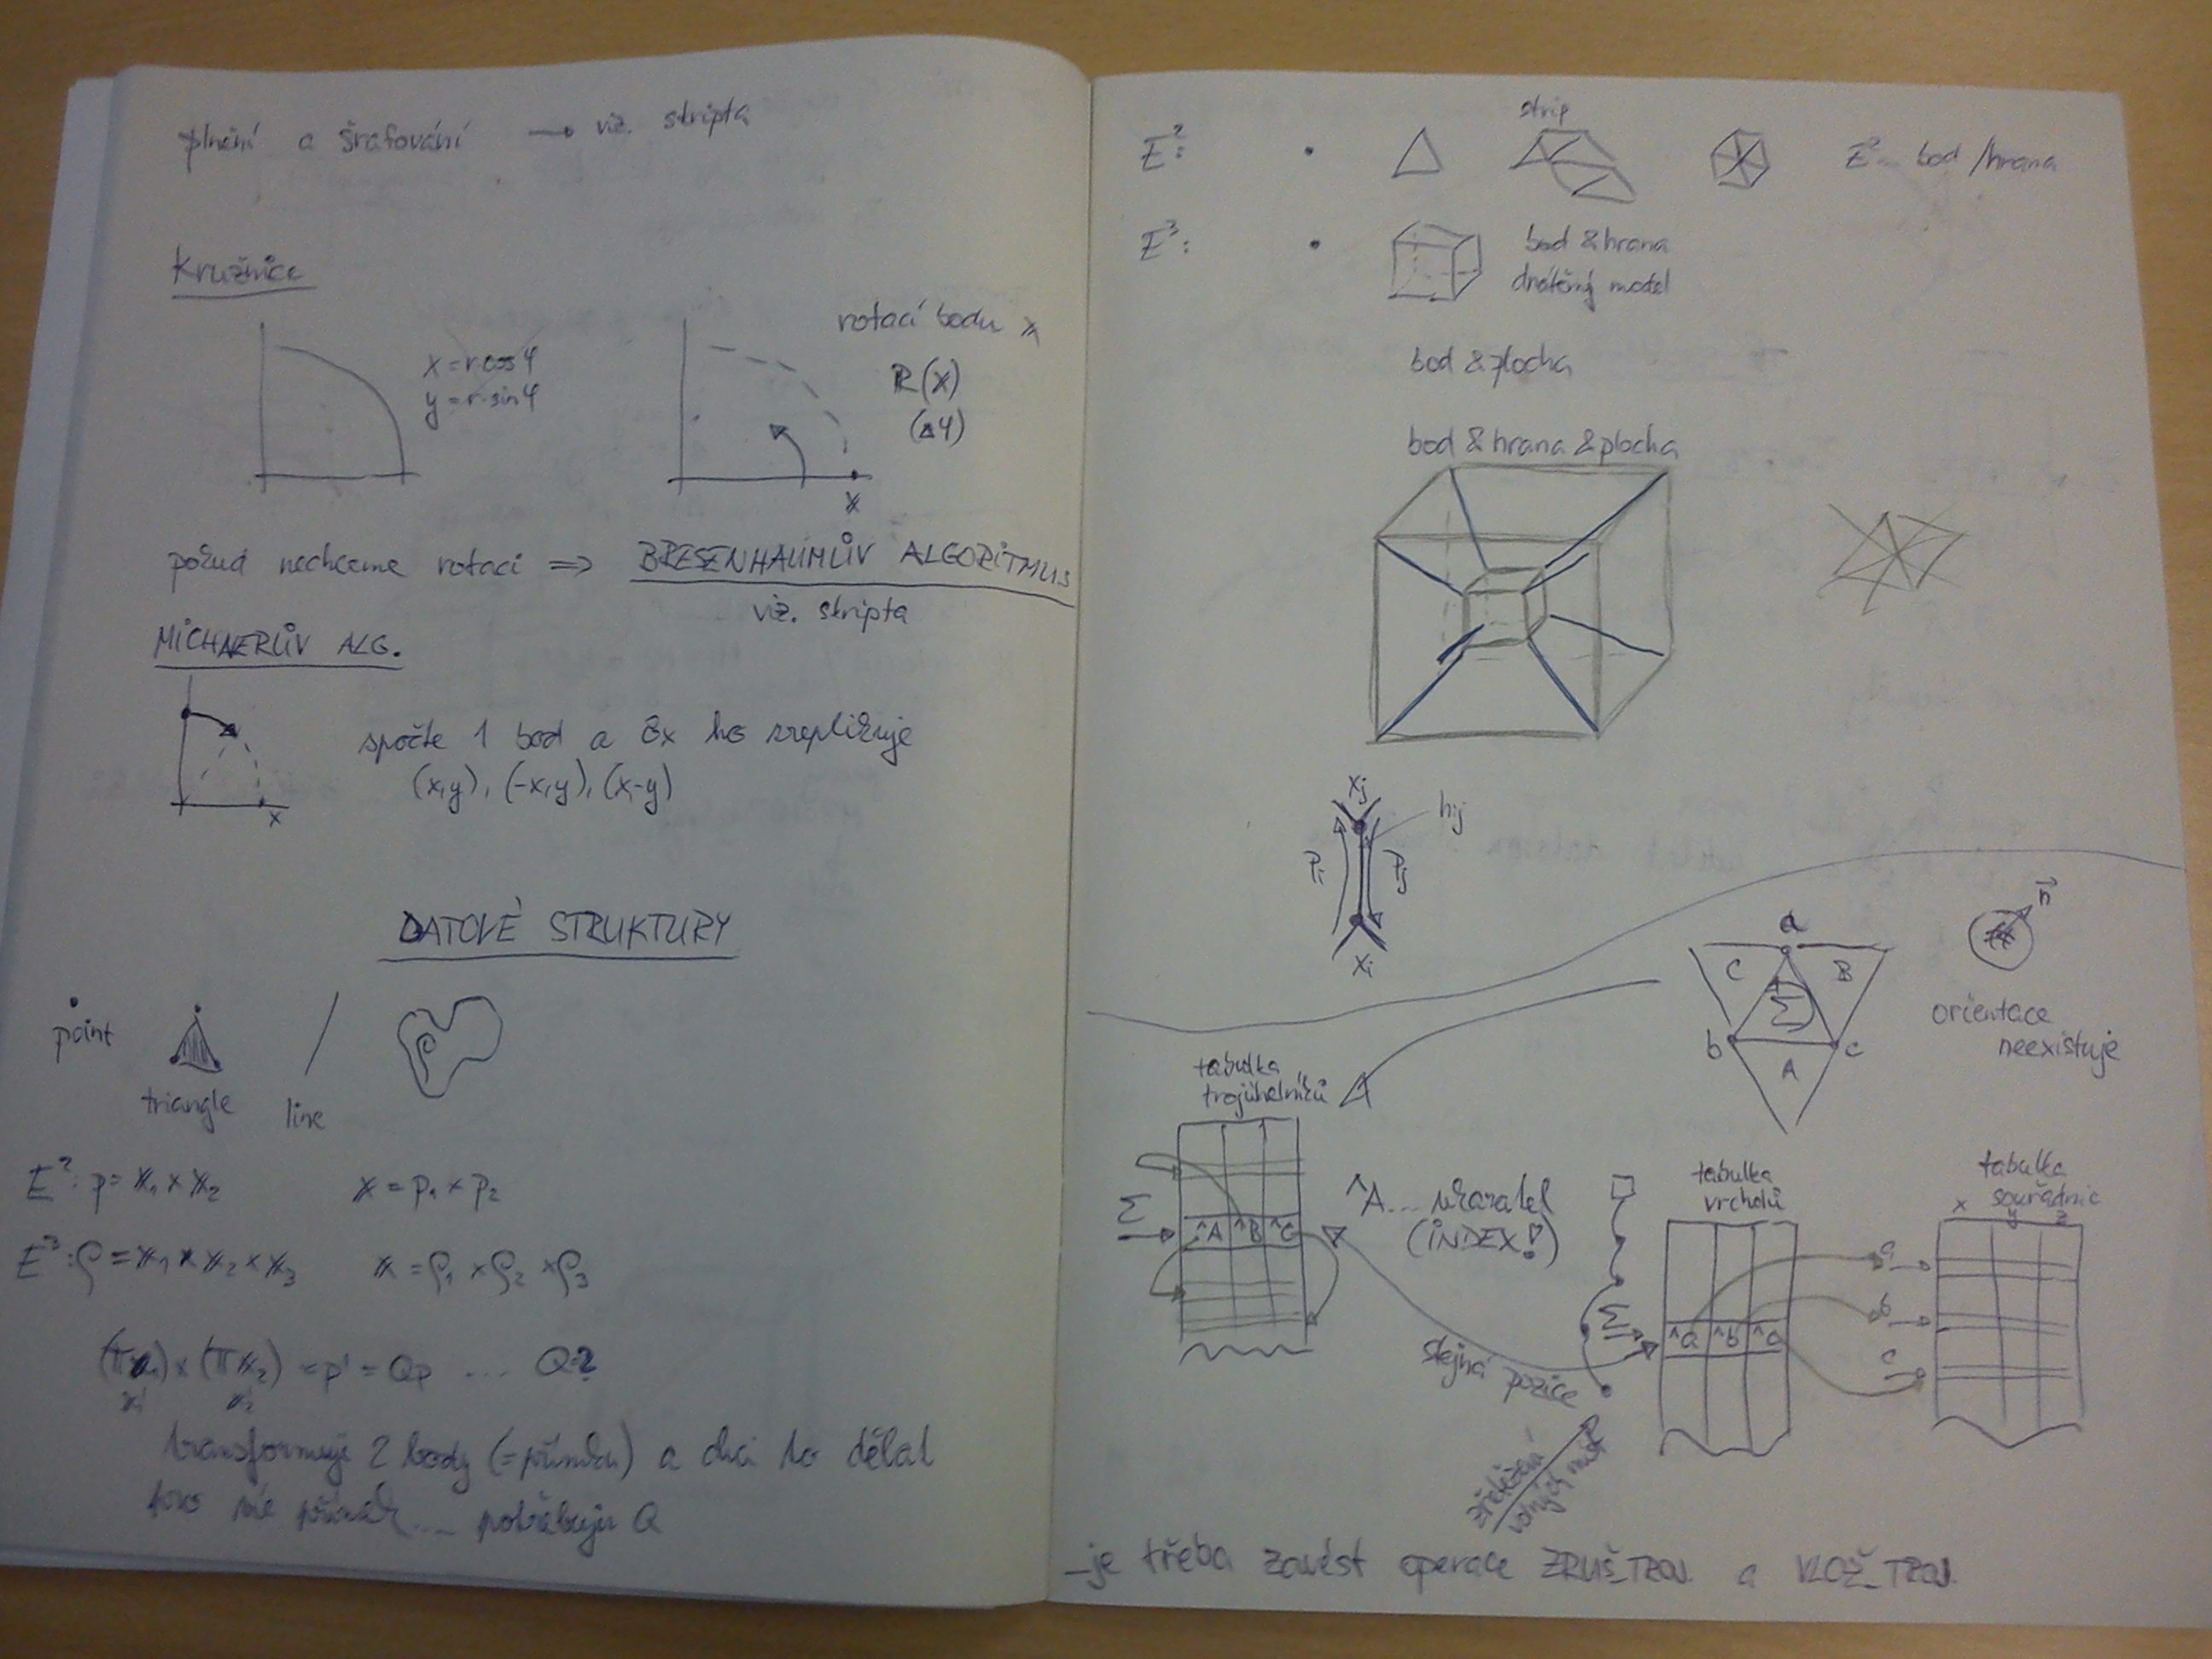 plnění a šrafování → viz. skripta
Kružnice
x = r·cos φ
y = r·sin φ
rotací bodu x
R(x)
(Δφ)
x
pokud nechceme rotaci => BRESENHAUMŮV ALGORITMUS
viz. skripta
MICHNERŮV ALG.
spočte 1 bod a 8x ho zreplikuje
(x,y), (-x,y), (x,-y)
x
DATOVÉ STRUKTURY
point
triangle
line
E²: p = x₁ × x₂ x = p₁ × p₂
E³: ρ = x₁ × x₂ × x₃ x = ρ₁ × ρ₂ × ρ₃
(πx₁) × (πx₂) = p' = Qp ... Q=?
x₁' x₂'
transformuji 2 body (=přímku) a chci to dělat
potřebuju Q
strip
E²: E² bod/hrana
E³: bod & hrana
drátěný model
bod & plocha
bod & hrana & plocha
xj
hij
Pi Pj
xi
n
a
C B
Σ
b c
A
orientace
neexistuje
tabulka
trojúhelníků
Σ
^A ^B ^C
^A... ukazatel
(INDEX!)
stejná pozice
zřetězení
volných míst
tabulka
vrcholů
Σ
^a ^b ^c
tabulka
souřadnic
x y z
a
b
c
-je třeba zavést operace ZRUŠ_TROJ. a VLOŽ_TROJ.